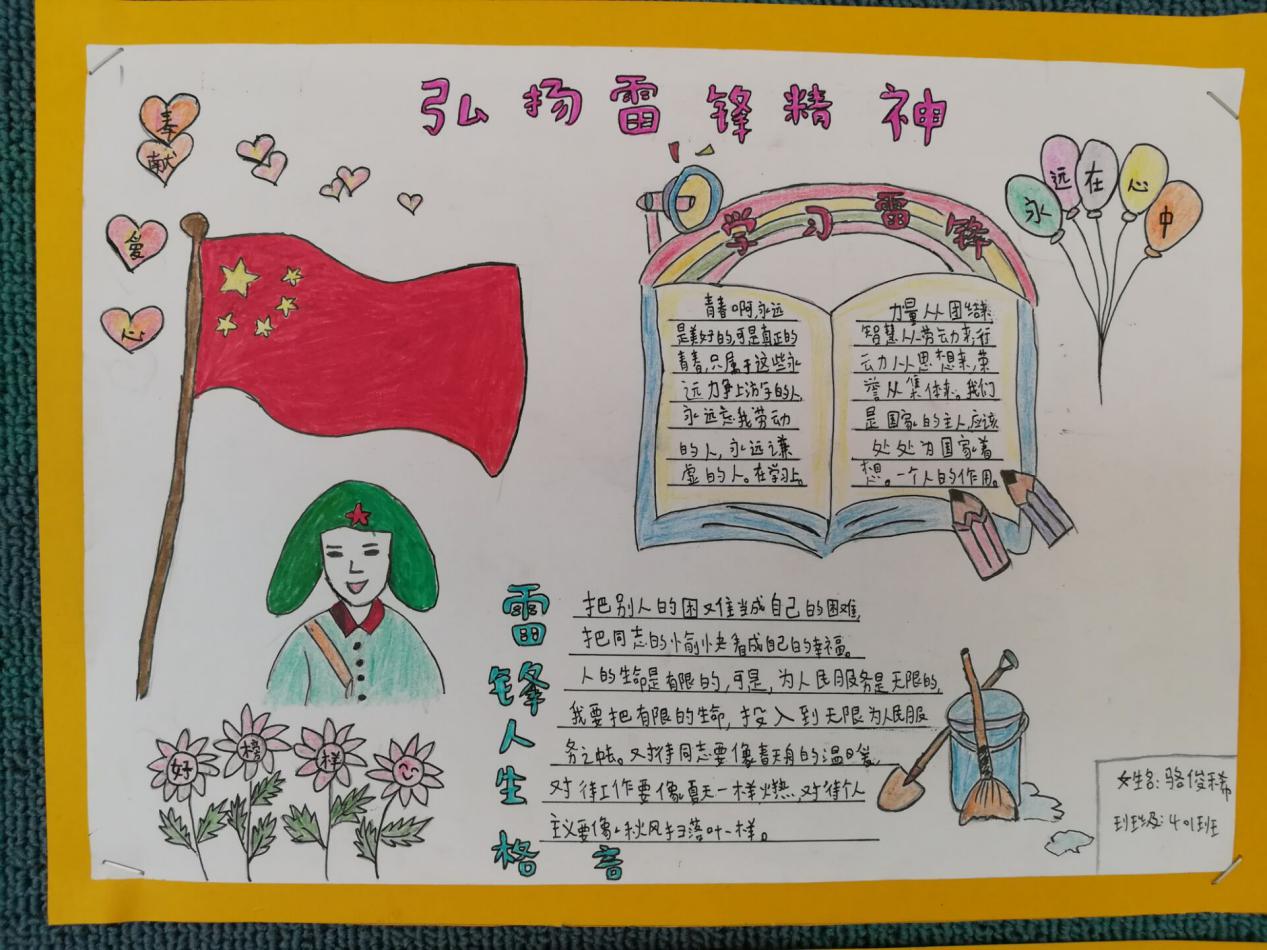 弘扬雷锋精神
奉
献
爱
心
永远在心中
学习雷锋
青春啊,永远
是美好的,可是真正的
青春,只属于这些永
远力争上游的人,
永远忘我劳动
的人,永远谦
虚的人。在学习上。
力量从团结来,
智慧从劳动来,行
动从思想来,荣
誉从集体来。我们
是国家的主人,应该
处处为国家着
想。一个人的作用。
雷锋人生格言
把别人的困难当成自己的困难,
把同志的愉快看成自己的幸福。
人的生命是有限的,可是,为人民服务是无限的,
我要把有限的生命,投入到无限为人民服
务之中去。对待同志要像春天般的温暖,
对待工作要像夏天一样火热,对待个人
主义要像秋风扫落叶一样。
好榜样
姓名:骆俊稀
班级:401班